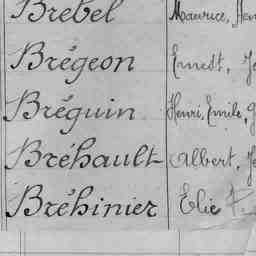 Brebel Maurice, Hen
Brégeon Ernest, Je
Bréguin Henri, Emile, G
Bréhault Albert, Je
Bréhinier Elie F.